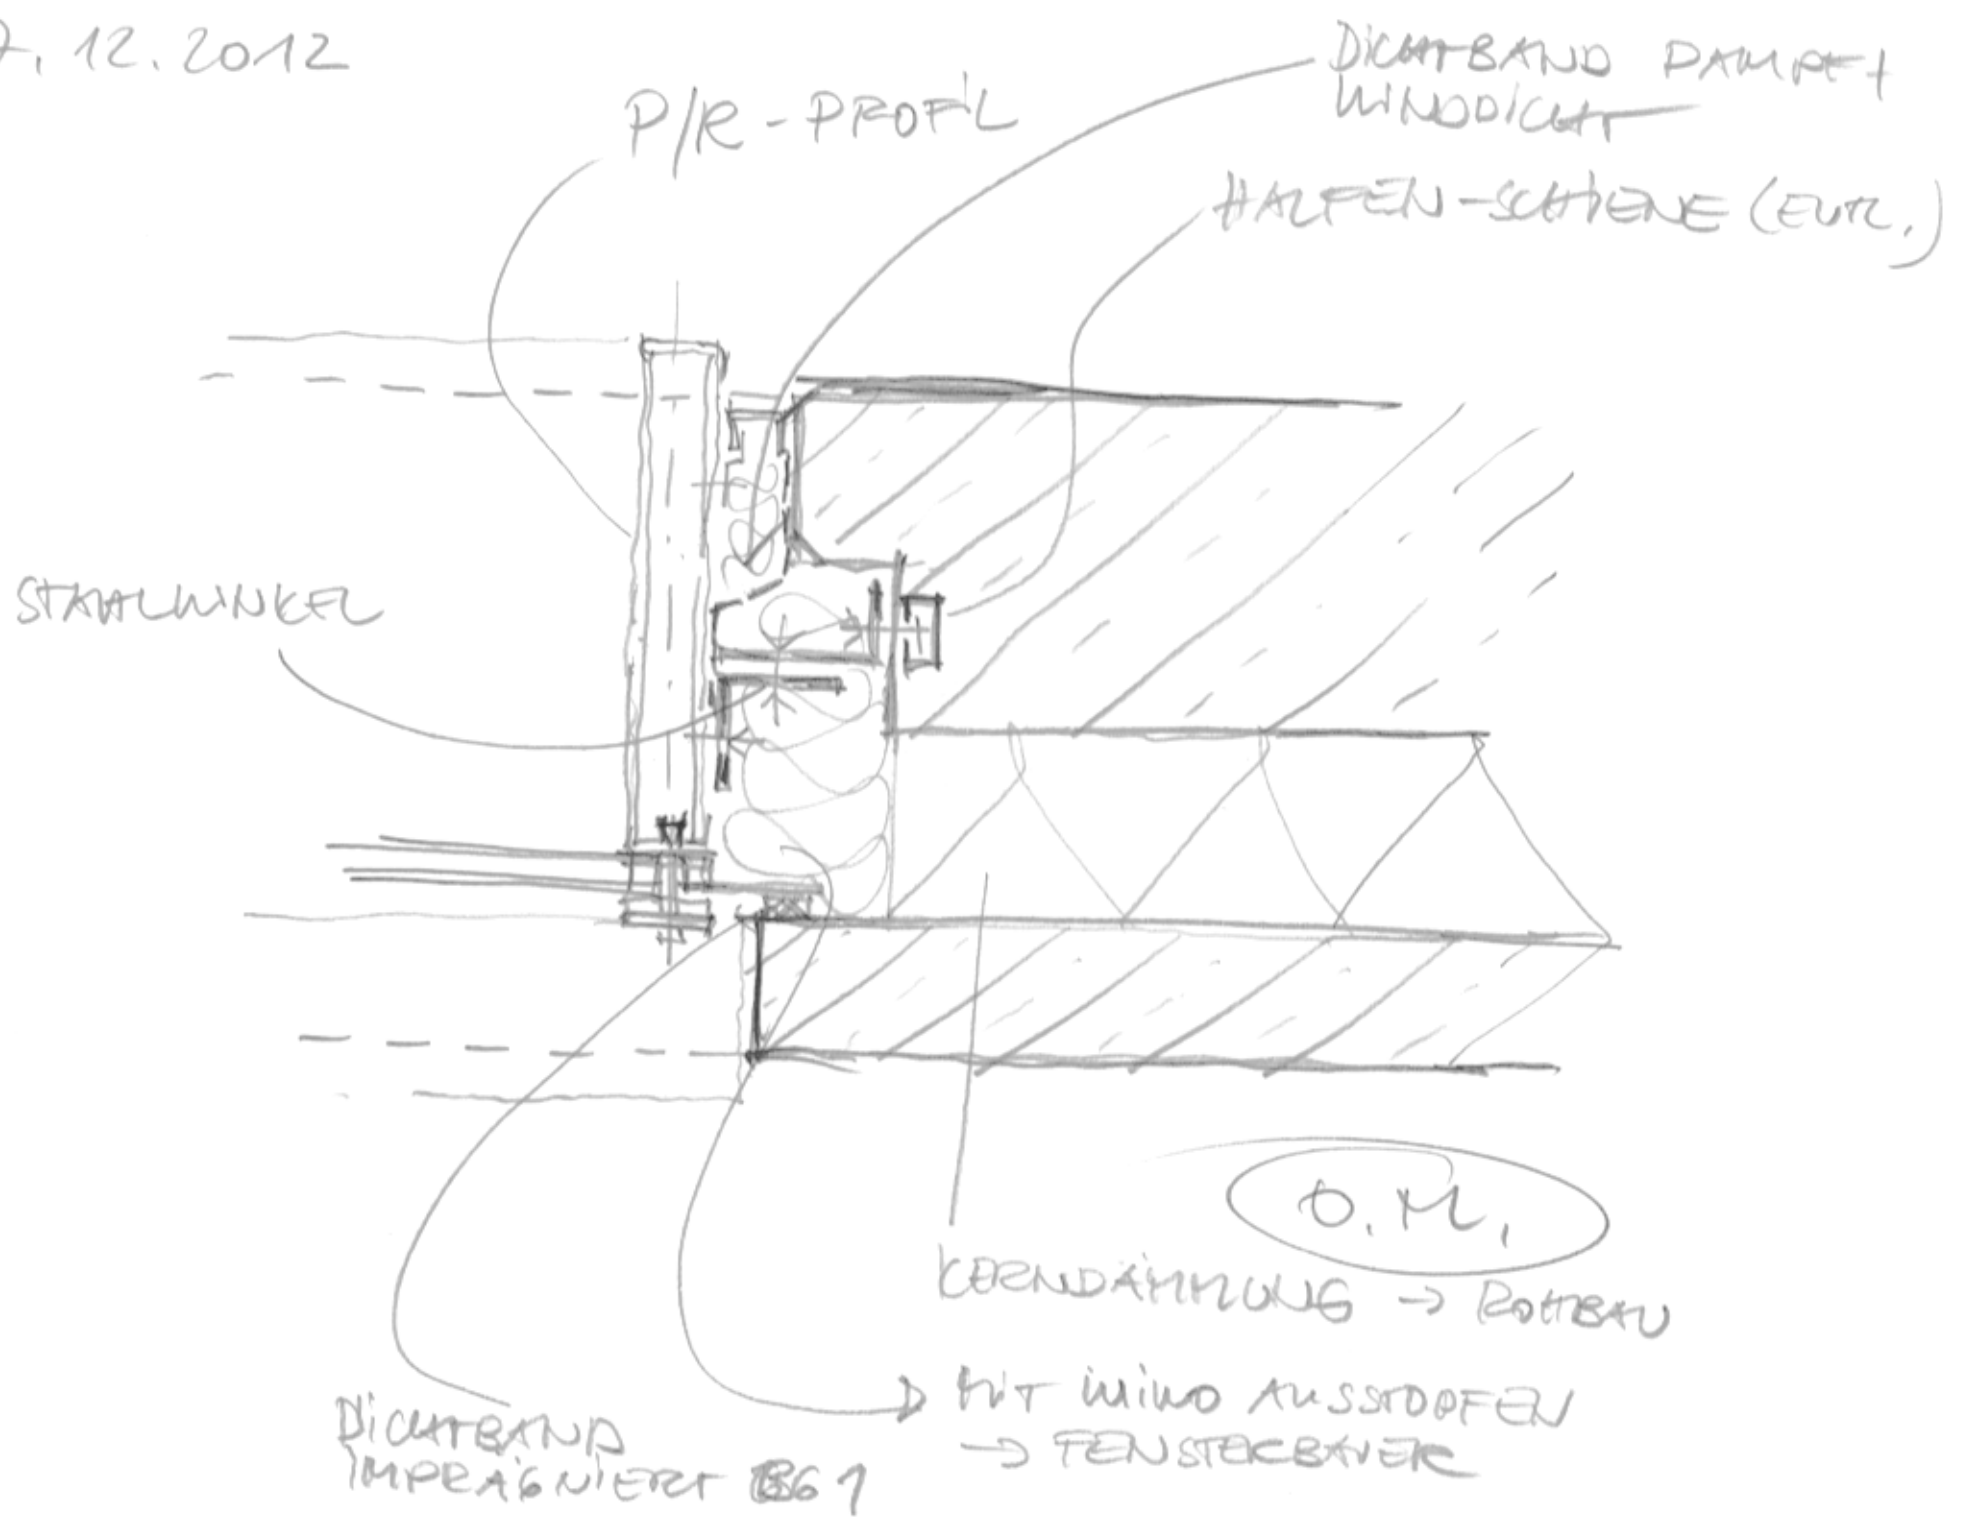 7. 12. 2012
P/R-PROFIL
DICHTBAND DAMPF+
WINDDICHT
HALFEN-SCHIENE (EVTL.)
STAHLWINKEL
O.M.
KERNDÄMMUNG → ROHBAU
MIT MIWO AUSSTOPFEN
→ FENSTERBAUER
DICHTBAND
IMPRÄGNIERT BG1